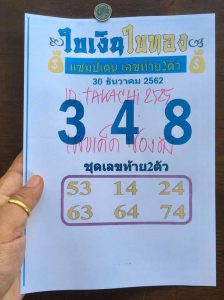 ใบเงินใบทอง
แชมป์เด่น เลขท้าย2ตัว
30 ธันวาคม 2562
ID TAKACHI 2525
3 4 8
ชุดเลขท้าย2ตัว
53 14 24
63 64 74